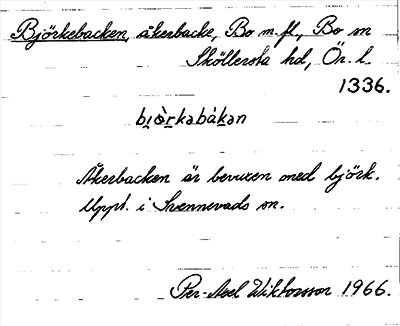 Björkebacken, åkerbacke, Bo m.fl., Bo sn
Sköllersta hd, Ör. l.
1336.
bi̯ὸrkabákan
Åkerbacken är bevuxen med björk.
Uppt. i Svennevads sn.
Per-Axel Wiktorsson 1966.